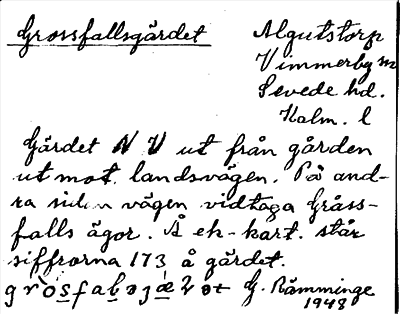 Grossfallsgärdet
Algutstorp
Vimmerby m
Sevede hd.
Kalm. l
Gärdet N V ut från gården
ut mot landsvägen. På and-
ra sidan vägen vidtaga Gråss-
falls ägor. Å ek-kart. står
siffrorna 173 å gärdet.
G. Rämminge
1948